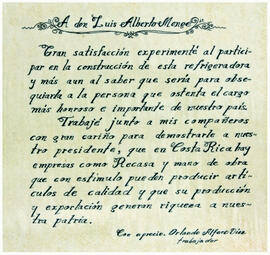 A don Luis Alberto Monge
Gran satisfacción experimenté al partici-
par en la construcción de esta refrigeradora
y más aun al saber que sería para obse-
quiarla a la persona que ostenta el cargo
más honroso e importante de nuestro país.
Trabajé junto a mis compañeros
con gran cariño para demostrarle a nues-
tro presidente, que en Costa Rica hay
empresas como Recasa y mano de obra
que con estimulo pueden producir artí-
culos de calidad y que su producción
y exportación generan riqueza a nues-
tra patria.
Con aprecio. Orlando Alfaro Díaz
trabajador